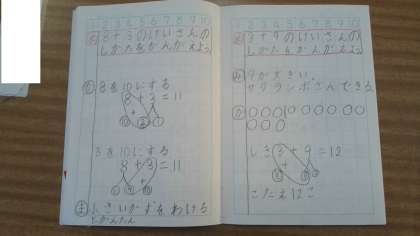 1 2 3 4 5 6 7 8 9 10
8+3のけいさんの
しかたをかんがえよう
8を10にする
8+3=11
10 2 1
3を10にする
8+3=11
1 7
ま 小さいかずをわける
とかんたん
1 2 3 4 5 6 7 8 9 10
3+9のけいさんの
しかたをかんがえよう
9が大きい。
サクランボさんできる
しき 3+9=12
こたえ12こ